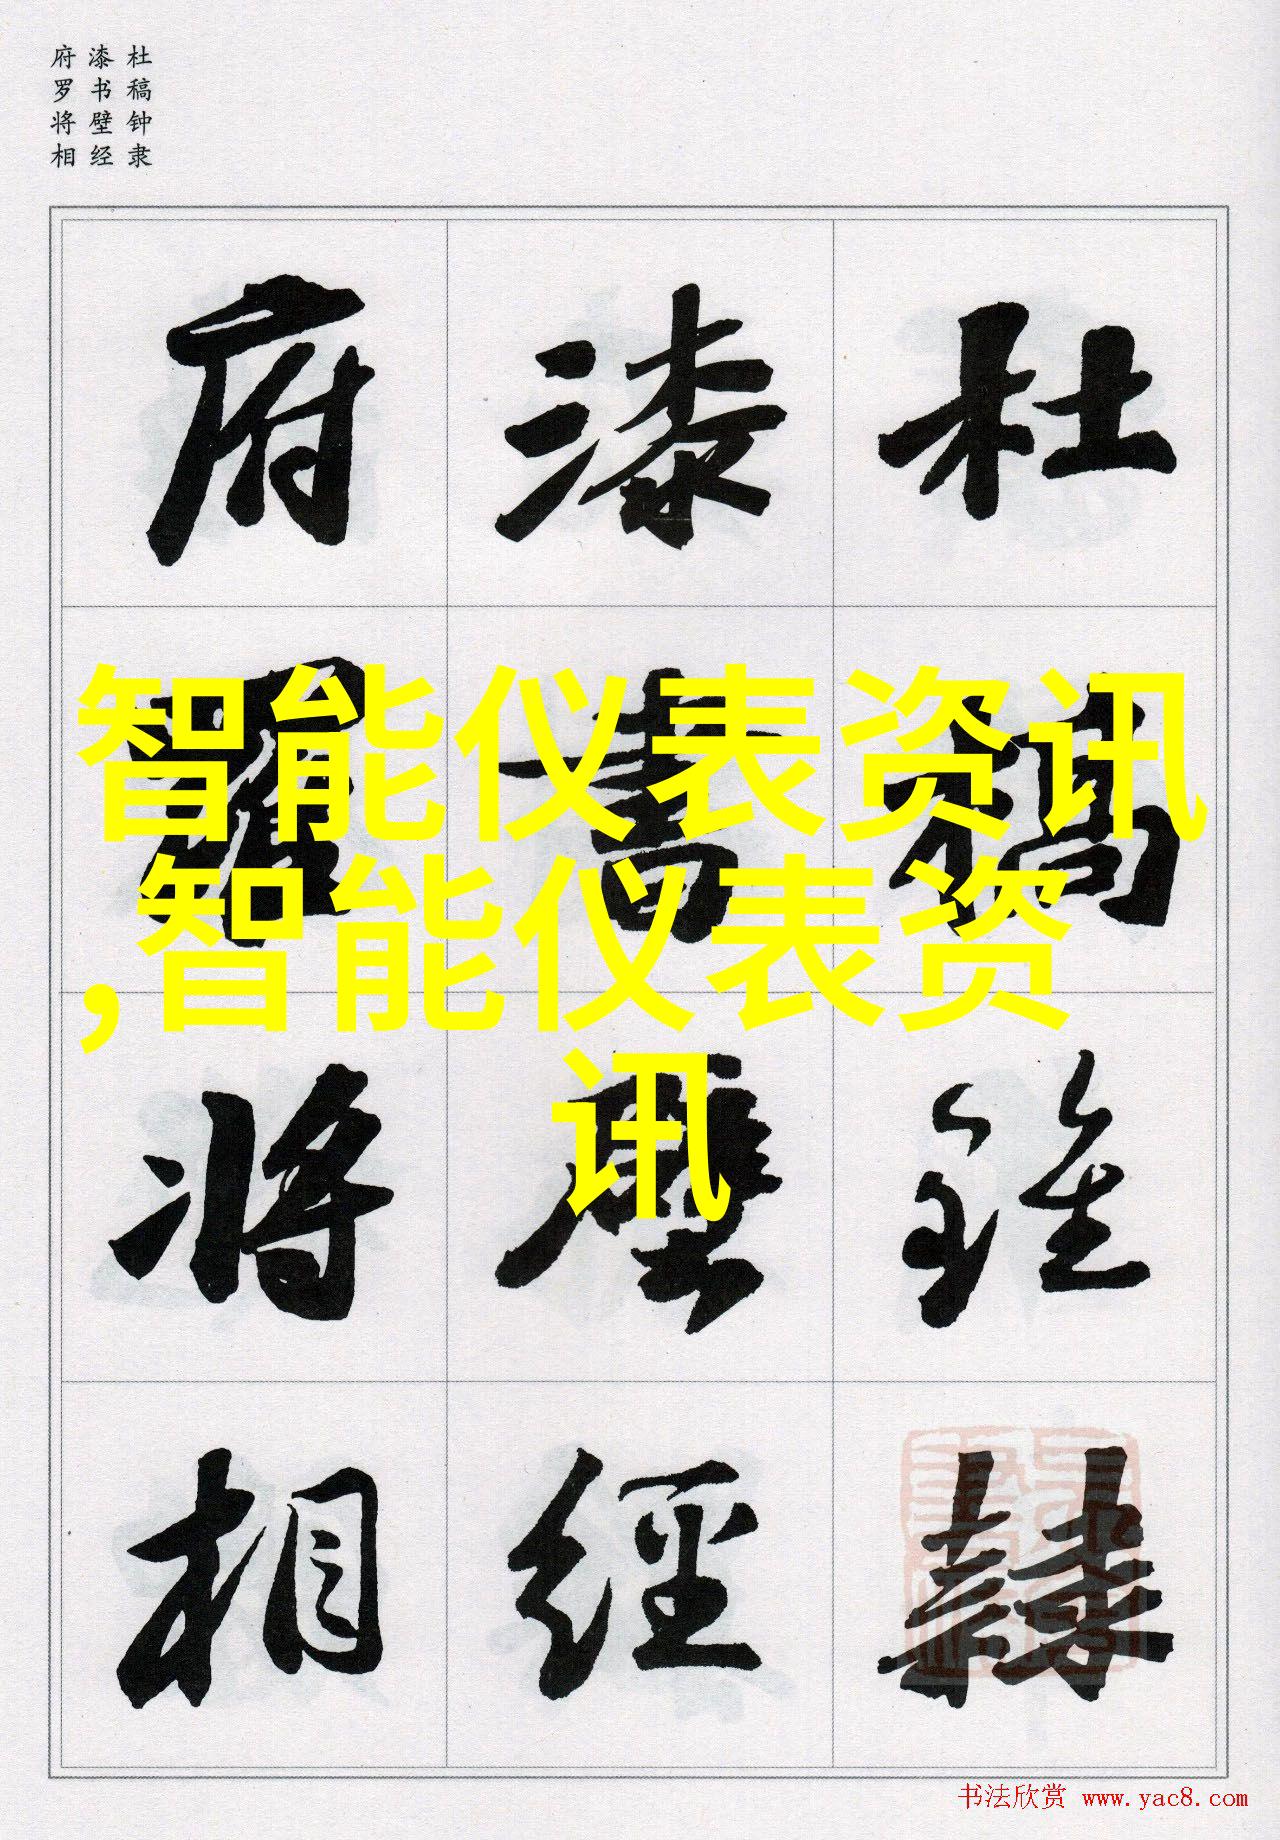 杜稿钟隶
漆书壁经
府罗将相
杜稿鍾隸
漆書壁經
府羅将相
智能仪表资讯
,智能仪表资
讯
书法欣赏 www.yac8.com